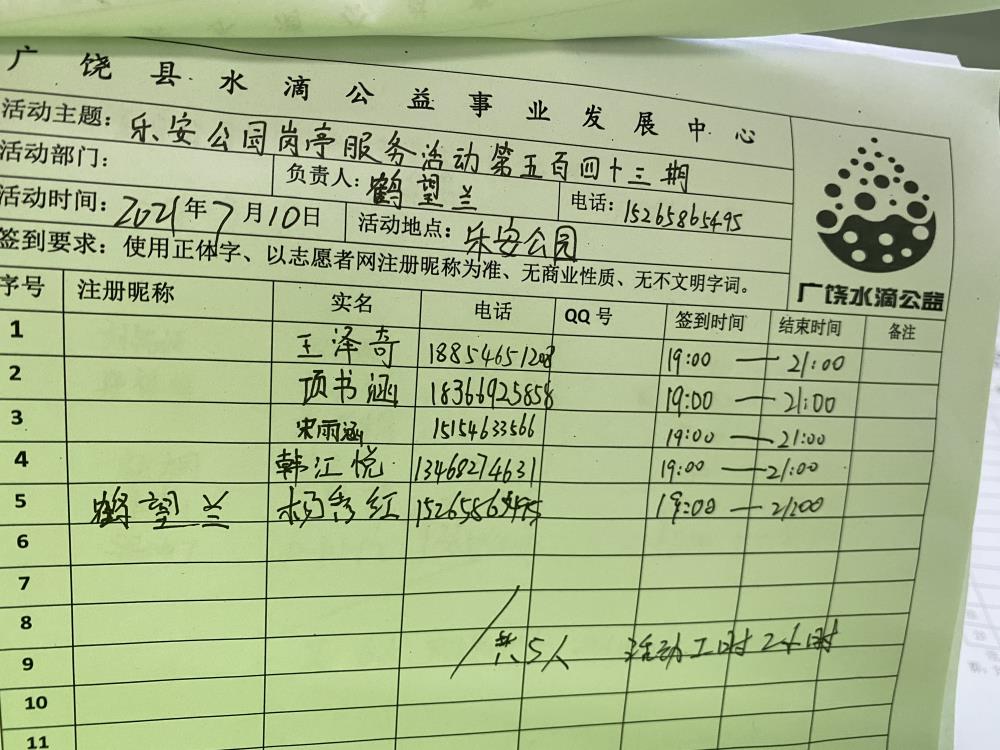 广饶县水滴公益事业发展中心
活动主题：乐安公园岗亭服务活动第五百四十三期
活动部门： 负责人：鹤望兰 电话：15265865495
活动时间：2021年7月10日 活动地点：乐安公园
签到要求：使用正体字、以志愿者网注册昵称为准、无商业性质、无不文明字词。
广饶水滴公益
序号 注册昵称 实名 电话 QQ号 签到时间 结束时间 备注
1 王泽奇 18854651208 19:00 — 21:00
2 项书涵 18366925858 19:00 — 21:00
3 宋雨涵 15154633566 19:00 — 21:00
4 韩江悦 13468274631 19:00 — 21:00
5 鹤望兰 杨秀红 15265865495 19:00 — 21:00
6
7
8
9 共5人 活动工时2小时
10
11